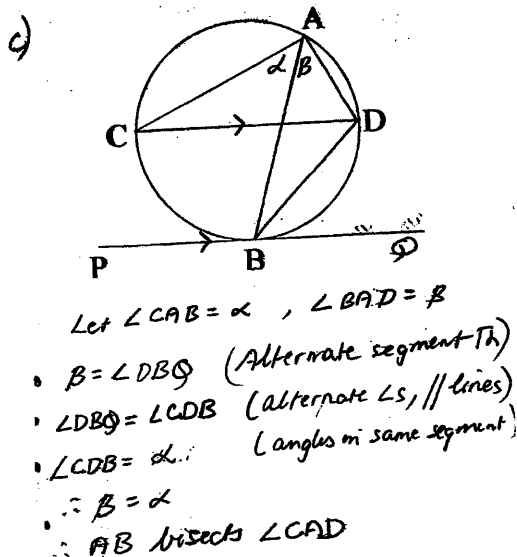 c)
A
α β
C
D
P
B
Q
Let ∠CAB = α , ∠BAD = β
• β = ∠DBQ (Alternate segment Th)
• ∠DBQ = ∠CDB (alternate ∠s, // lines)
• ∠CDB = α. (angles in same segment)
• ∴ β = α
∴ AB bisects ∠CAD